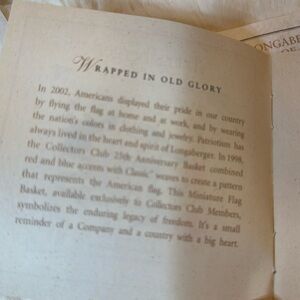 WRAPPED IN OLD GLORY
In 2002, Americans displayed their pride in our country
by flying the flag at home and at work, and by wearing
the nation's colors in clothing and jewelry. Patriotism has
always lived in the heart and spirit of Longaberger. In 1998,
the Collectors Club 25th Anniversary Basket combined
red and blue accents with Classic weaves to create a pattern
that represents the American flag. This Miniature Flag
Basket, available exclusively to Collectors Club Members,
symbolizes the enduring legacy of freedom. It's a small
reminder of a Company and a country with a big heart.
ONGABE
OF